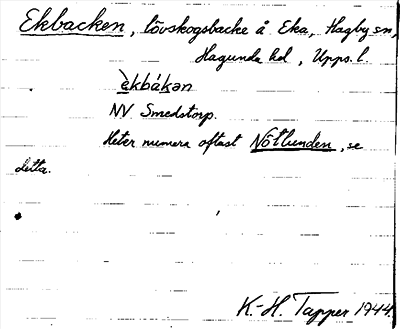 Ekbacken, lövskogsbacke å Eka, Hagby sn,
Hagunda hd, Upps. l.
ὲkbákən
NV Smedstorp.
Heter numera oftast Nötlunden, se
detta.
K.-H. Tapper 1944.